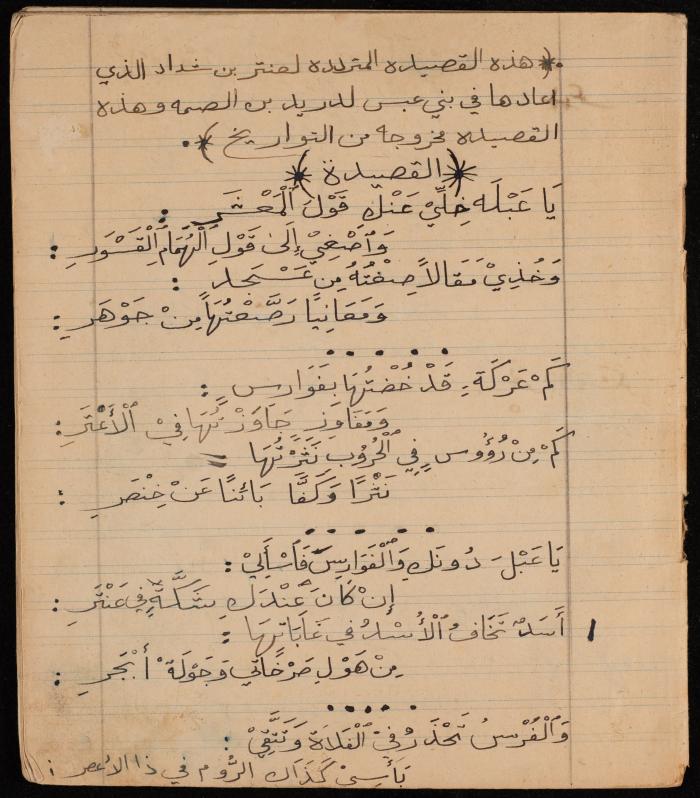 هذه القصيده المتردده لعنتر بن شداد الذي
اعادها في بني عبس لدريد بن الصمه وهذه
القصيده مخروجه من التواريخ
القصيدة
يَا عَبْلَه خِلِّيْ عَنْكِ قَوْلَ اَلْمَعْشَرِ :
وَاَصْغِيْ إِلَىٰ قَوْلِ اَلْهُمَامِ اَلْقَسْوَرِ :
وَخُذِيْ مَقَالاً صِغْتُهُ مِن عَسْجَدٍ :
وَمَعَانِيًا رَصَّعْتُهَا مِنْ جَوْهَرِ :
كَمْ عَرْكَةٍ قَدْ خُضْتُهَا بِفَوَارِسٍ :
وَمَفَاوِزٍ جَاوَزْتُهَا فِيْ اَلْأَعْتَرِ :
كَمْ مِنْ رُؤُوسٍ فِي اَلْحُرُوْبِ نَثَرْتُهَا =
نَثْرًا وَكَفًّا بَائِنًا عَنْ خِنْصَرِ :
يَا عَبْلَ دُونَكِ وَاَلْفَوَارِسَ فَاَسْأَلِيْ :
إِن كَانَ عِنْدَكِ شَكَّةٌ فِي عَنْتَرِ :
أَسَدٌ تَخَافُ اَلْأُسْدُ فِي غَابَاتِهَا : ١
مِنْ هَوْلِ صَرْخَاتِي وَجَوْلَةِ أَبْجَرِ :
وَاَلْفُرْسُ تَحْذَرُ فِيْ اَلْفَلَاةِ وَتَتَّقِيْ :
بَأْسِيْ كَذَاكَ الرُّوم في ذا الاعصر :